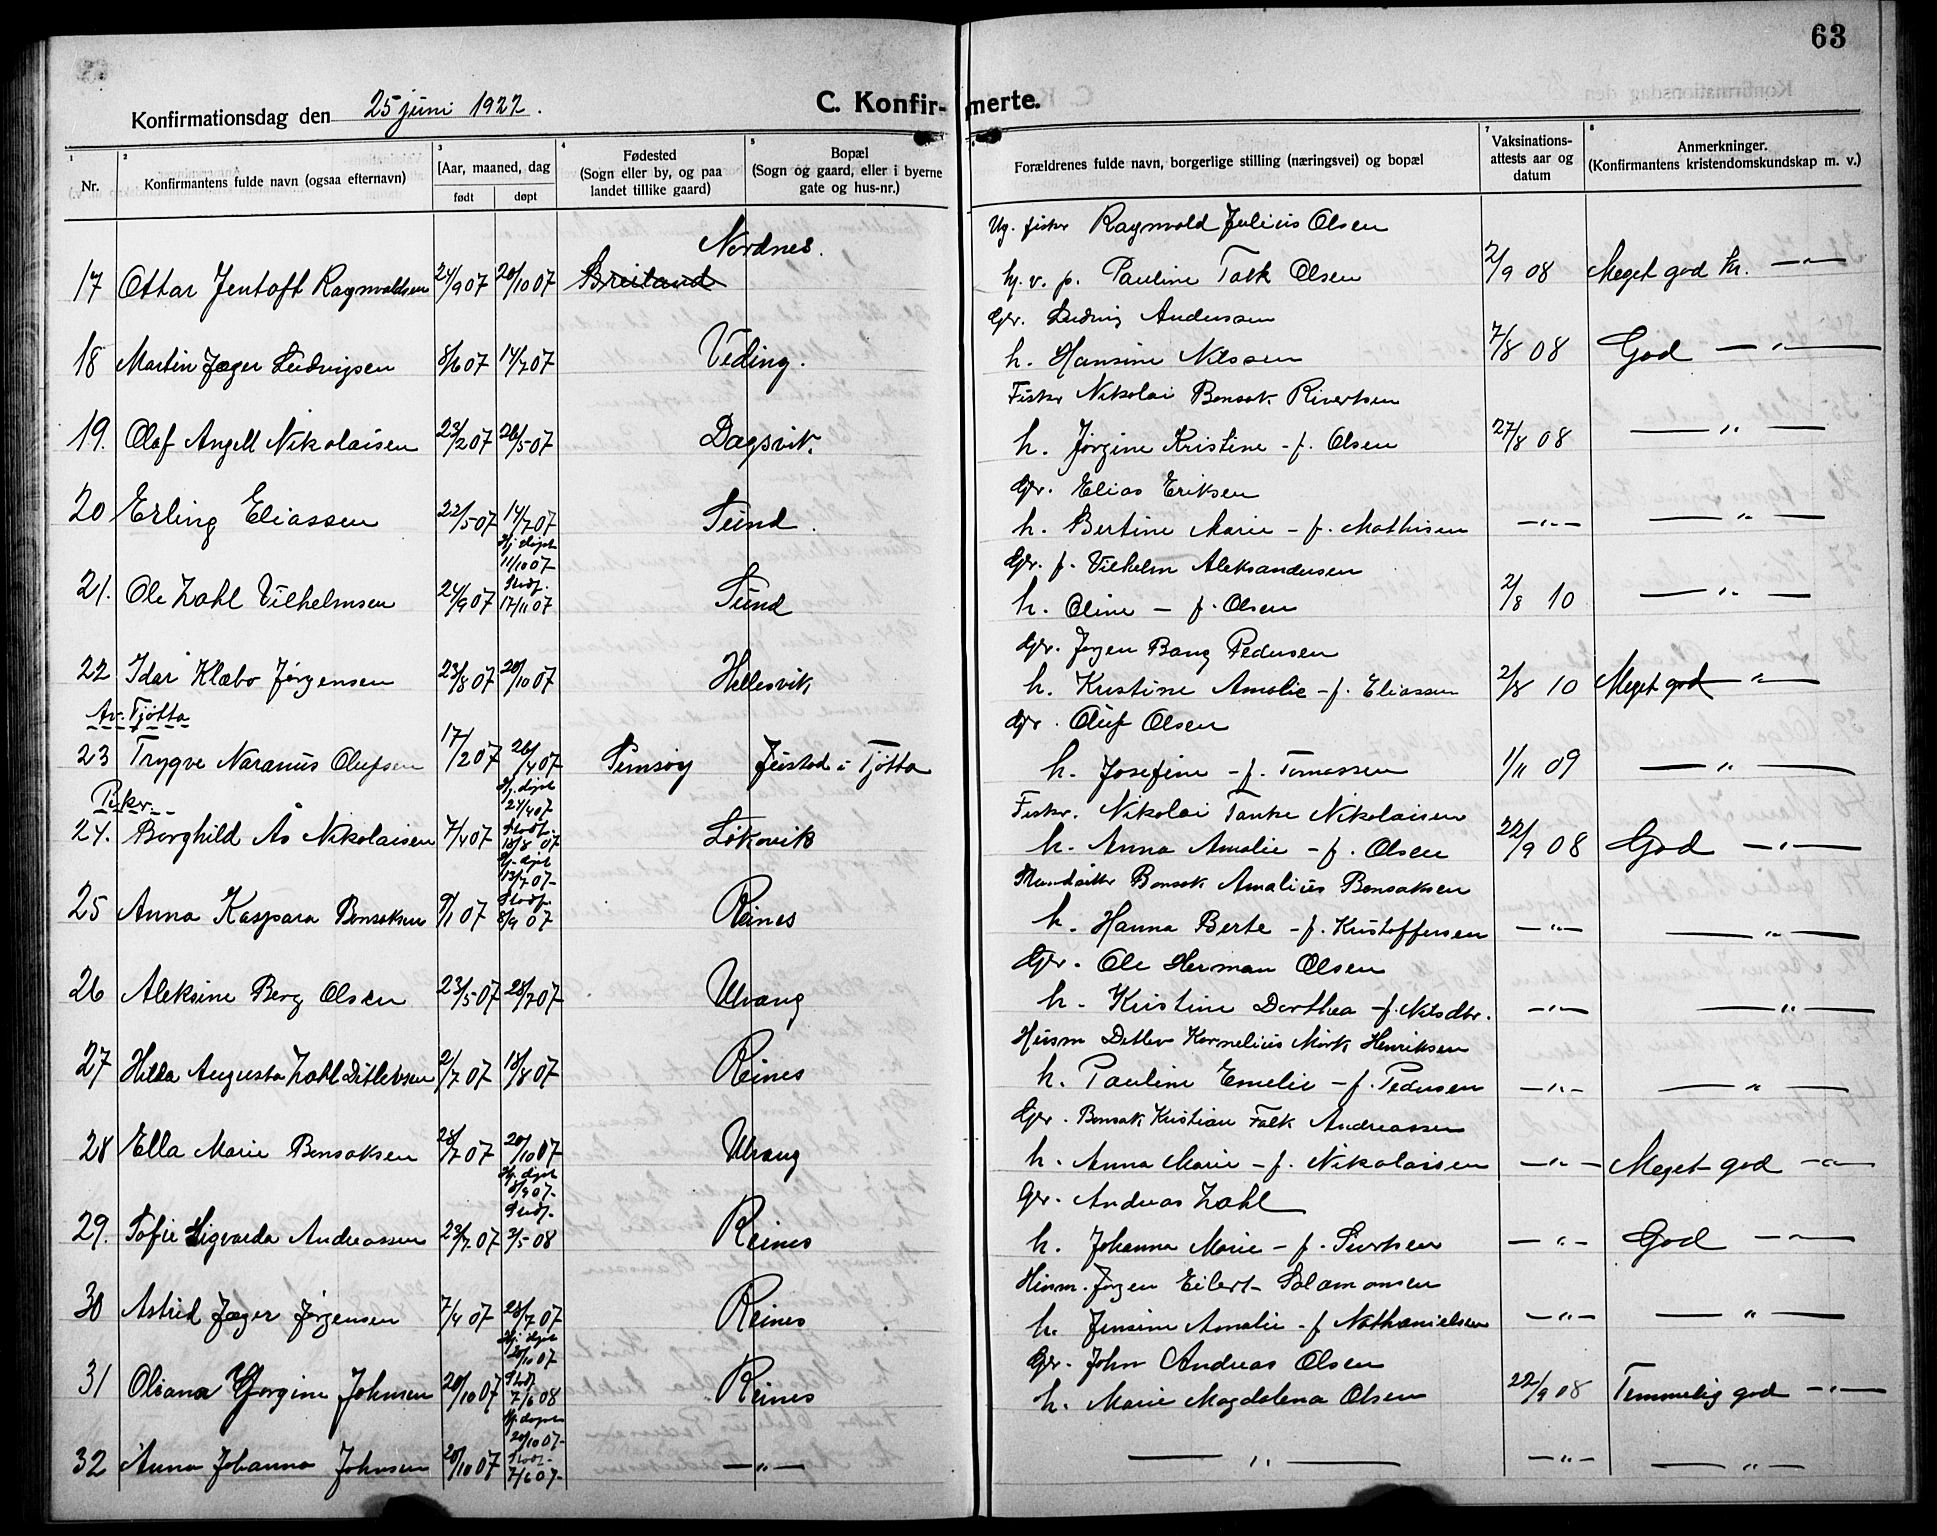 63
Konfirmationsdag den 25 juni 1922.
C. Konfirmerte.
1 Nr.
2 Konfirmantens fulde navn (ogsaa efternavn)
3 [Aar, maaned, dag
født døpt
4 Fødested (Sogn eller by, og paa landet tillike gaard)
5 Bopæl (Sogn og gaard, eller i byerne gate og hus-nr.)
Forældrenes fulde navn, borgerlige stilling (næringsvei) og bopæl
7 Vaksinations-attests aar og datum
8 Anmerkninger. (Konfirmantens kristendomskundskap m. v.)
Ug. fisker Ragnvald Julius Olsen
17 Ottar Jentoft Ragnvaldsen 24/9 07 20/10 07 Breiland Nordnes. p. Pauline Falk Olsen 2/9 08 Meget god kr. —"—
Gbr. Ludvig Anderssen
18 Martin Jæger Ludvigsen 8/6 07 14/7 07 Veding. h. Hansine Nilssen 7/8 08 God —"—
Fisker Nikolai Bonsak Rivertsen
19. Olaf Angell Nikolaisen 23/2 07 26/5 07 Dagsvik. h. Jørgine Kristine - f. Olsen 27/8 08 —"—
Gbr. Elias Eriksen
20 Erling Eliassen 22/5 07 14/7 07 Sund. h. Bertine Marie - f. Mathisen —"— —"—
Gbr. f. Vilhelm Aleksandersen
21. Ole Zahl Vilhelmsen 24/9 07 Hj. døpt 11/10 07 Stadf. 17/11 07 Sund h. Oline - f. Olsen 2/8 10 —"—
Gbr. Jørgen Bang Pedersen
22 Idar Klæbo Jørgensen 23/8 07 20/10 07 Hellesvik h. Kristine Amalie - f. Eliassen 2/8 10 Meget god —"—
Av. Tjøtta
Gbr. Oluf Olsen
23 Trygve Naranius Olufsen 17/2 07 26/4 07 Jeistad i Tjøtta h. Josefine - f. Tomassen 1/11 09 —"—
Piker.
Fisker. Nikolai Tanke Nikolaisen
24. Borghild Ås Nikolaisen 7/4 07 Hj. døpt 24/4 07 Stadf. 18/8 07 Løkvik h. Anna Amalie - f. Olsen 22/9 08 God —"—
Bonsak Amalius Bonsaksen
25 Anna Kaspara Bonsaksen 9/1 07 Hj. døpt 13/7 07 Stadf. 8/9 07 Reines h. Hanna Berte - f. Kristoffersen —"— —"—
Gbr. Ole Herman Olsen
26 Aleksine Berg Olsen 23/5 07 28/7 07 Ulvang h. Kristine Dorthea - f. Nilsdtr. —"— —"—
Husm Detlev Kornelius Mørk Henriksen
27 Hilda Augusta Zahl Ditlevsen 2/7 07 18/8 07 Reines h. Pauline Emelie - f. Pedersen —"— —"—
Gbr. Bonsak Kristian Falk Andreassen
28 Ella Marie Bonsaksen 28/7 07 20/10 07 Ulvang h. Anna Marie - f. Nikolaisen —"— Meget god —"—
Gbr. Andreas Zahl
29. Sofie Sigvarda Andreassen 23/7 07 Hj. døpt 8/9 07 Stadf. 3/5 08 Reines h. Johanna Marie - f. Sivertsen —"— God —"—
Husm. Jørgen Eilert Salamonsen
30 Astrid Jæger Jørgensen 7/4 07 28/7 07 Reines h. Jensine Amalie - f. Nathanielsen —"— —"—
Gbr. John Andreas Olsen
31 Oliana Georgine Johnsen 20/10 07 Hj. døpt 20/10 07 Stadf. 7/6 08 Reines h. Marie Magdalena Olsen 22/9 08 Temmelig god —"—
32 Anna Johanna Johnsen 20/10 07 Hj. døpt 20/10 07 Stadf. 7/6 07 —"— —"— —"— —"—